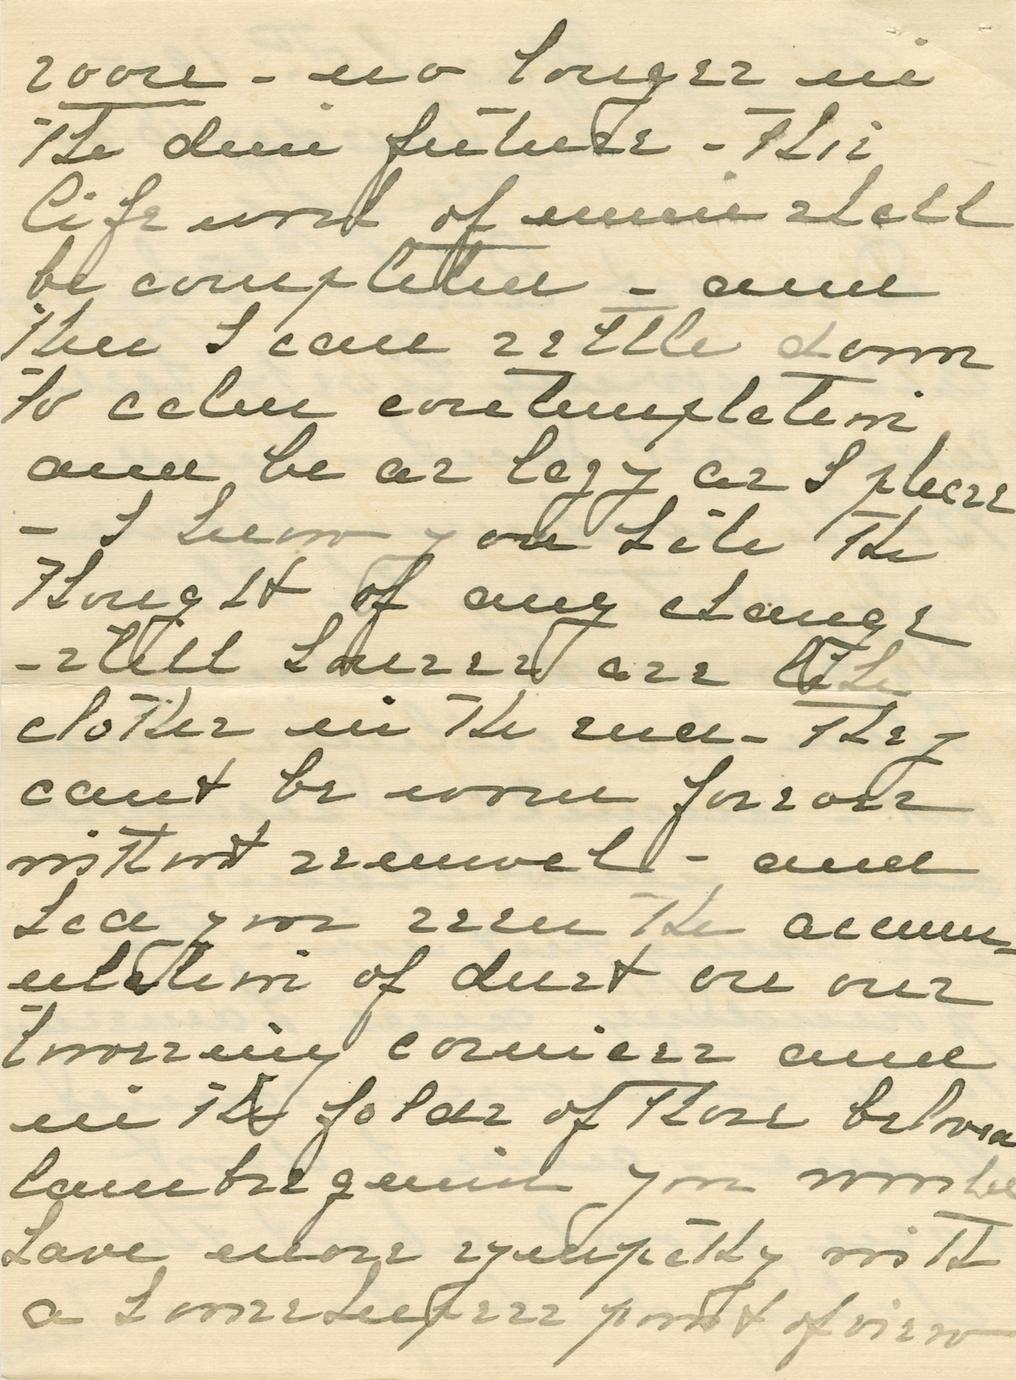 soon - no longer in
the dim future - this
life work of mine shall
be completed - and
then I can settle down
to calm contemplation
and be as lazy as I please
- I know you hate the
thought of any change
- still houses are like
clothes in the end - they
cant be worn forever
without renewal - and
had you seen the accum-
ulation of dust on our
towering cornices and
in the folds of those beloved
lambrequins you would
have more sympathy with
a housekeepers point of view